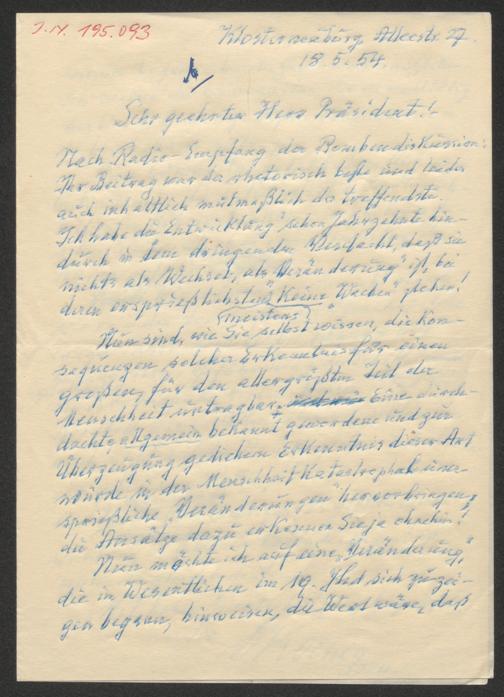 J.N. 195.093
Klosterneuburg, Alleestr. 27
18.5.54.
Sehr geehrter Herr Präsident!
Nach Radio-Empfang der Bombendiskussion:
Ihr Beitrag war das rhetorisch beste und leider
auch inhaltlich mutmaßlich das treffendste.
Ich habe die "Entwicklung" schon Jahrzehnte hin-
durch in dem dringenden Verdacht, daß sie
nichts als Wechsel, als "Veränderung" ist, bei
deren ersprießlichsten "Keine Wachen" stehen!
meistens
Nun sind, wie Sie selbst wissen, die Kon-
sequenzen solcher Erkenntnis für einen
großen, für den allergrößten Teil der
Menschheit untragbar. Eine durch-
dachte, allgemein bekannt gewordene und zur
Überzeugung gediehene Erkenntnis dieser Art
würde in der Menschheit katastrophal uner-
sprießliche "Veränderungen" hervorbringen,
die Ansätze dazu erkennen Sie ja ohnehin!
Nun möchte ich auf eine "Veränderung",
die im Wesentlichen im 19. Jhd. sich zu zei-
gen begann, hinweisen, die wert wäre, daß